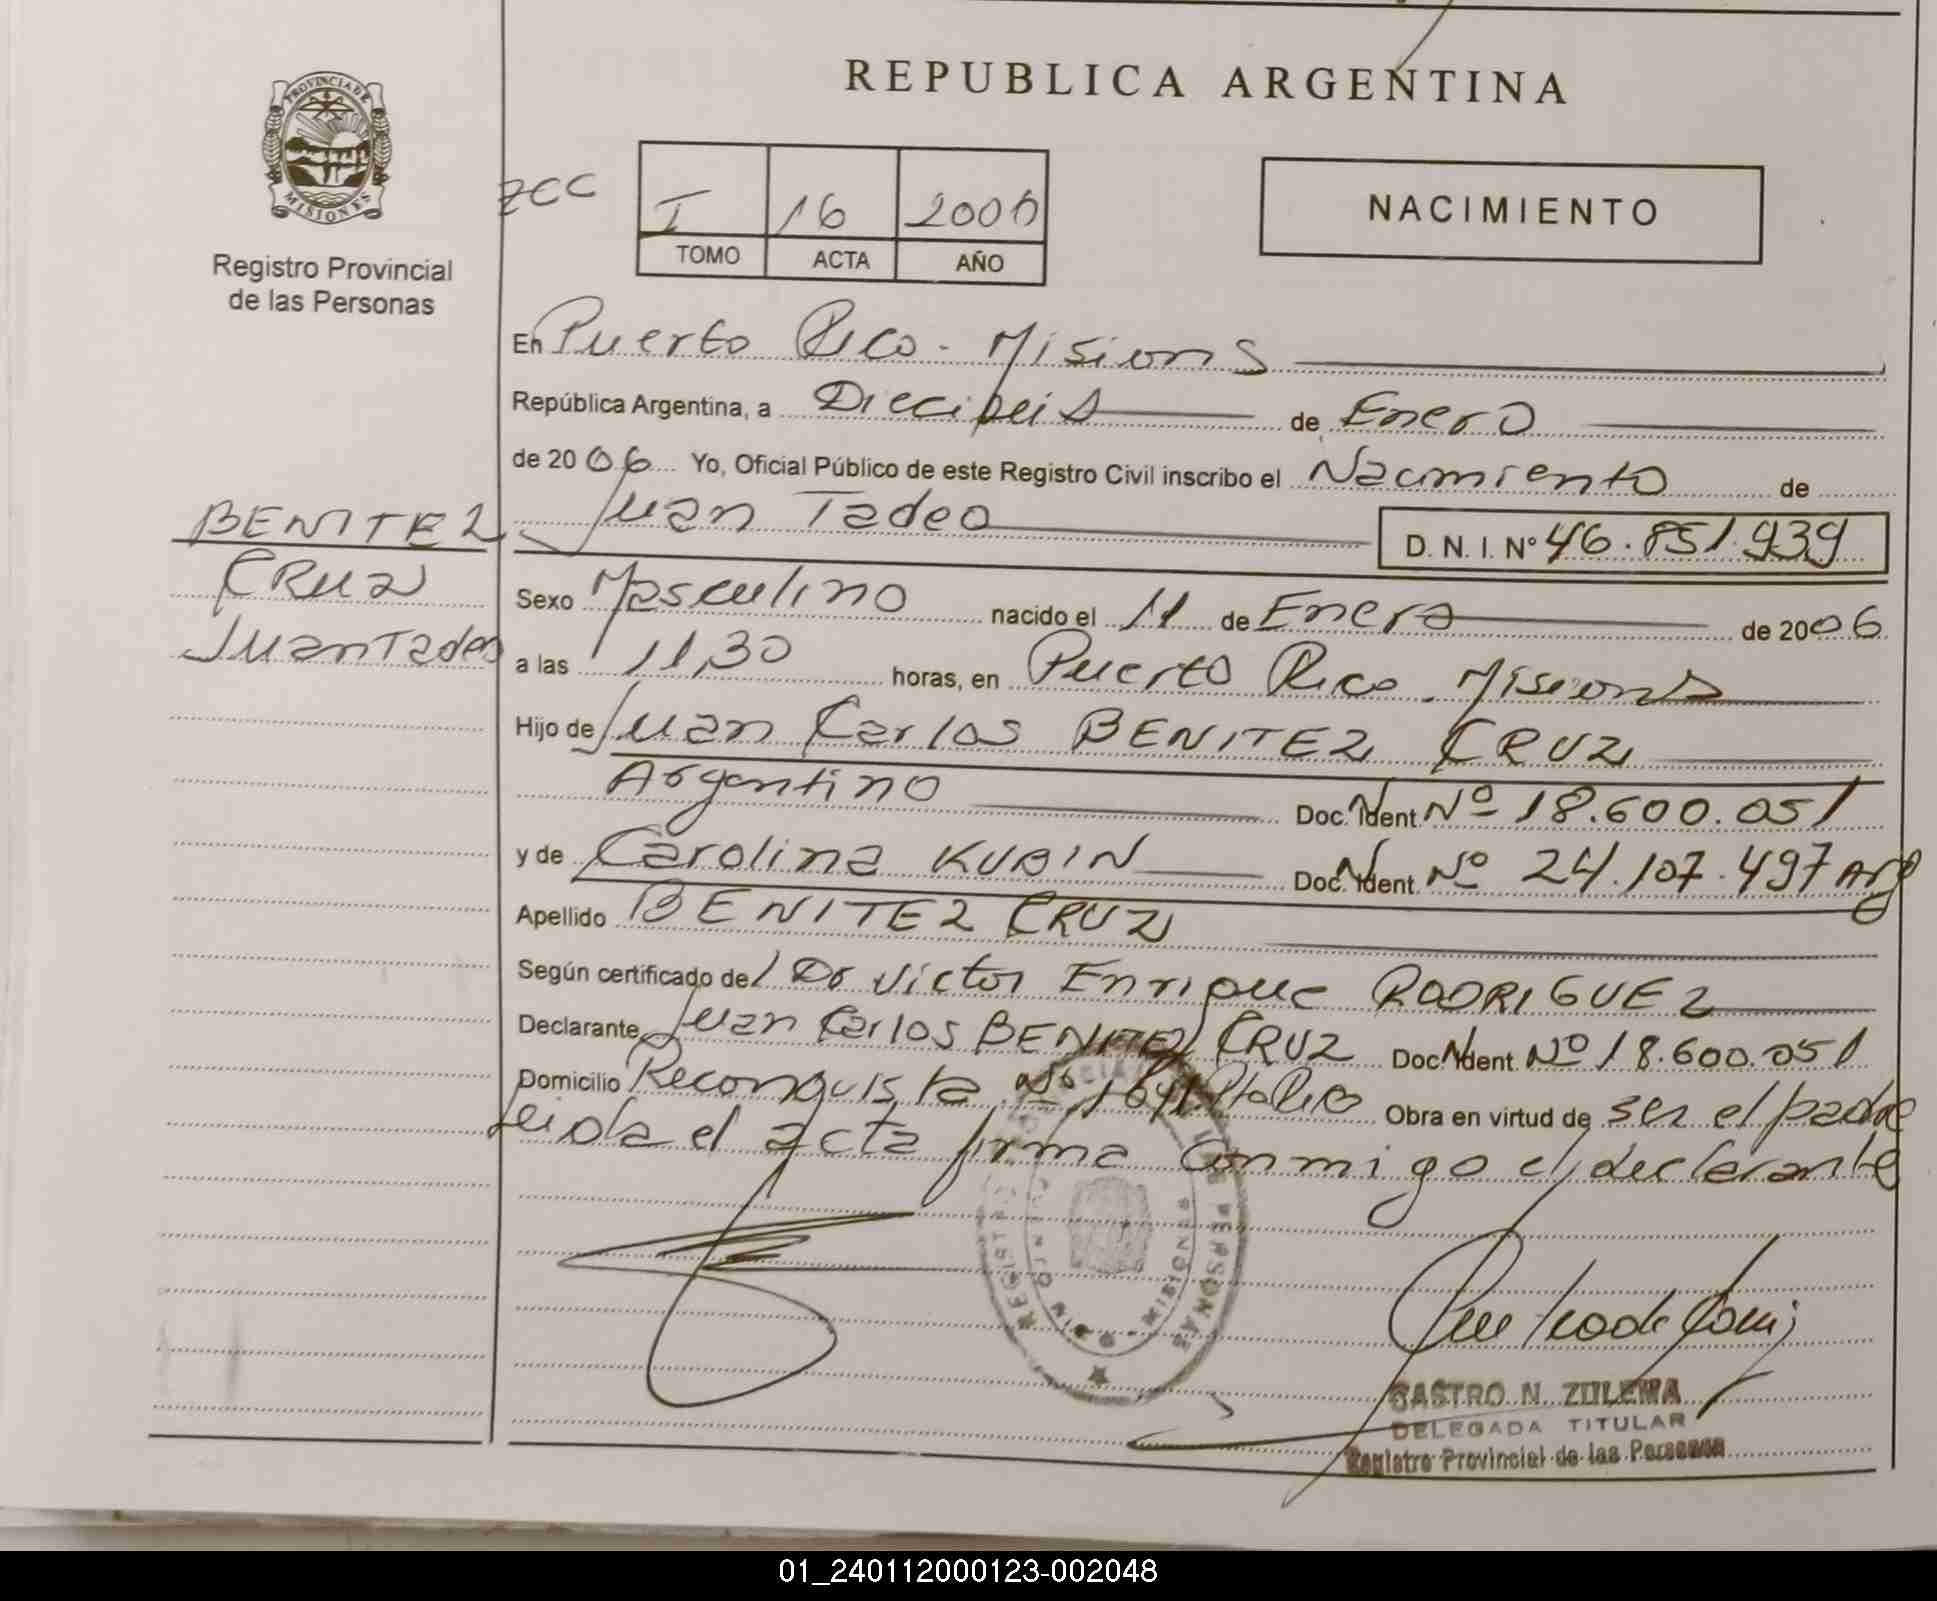 PROVINCIA DE
MISIONES
Registro Provincial
de las Personas
REPUBLICA ARGENTINA
I 16 2006
TOMO ACTA AÑO
NACIMIENTO
En Puerto Rico - Misions
República Argentina, a Dieciseis de Enero
de 2006 Yo, Oficial Público de este Registro Civil inscribo el Nacimiento de
Juan Tadeo D. N. I. Nº 46.851.939
BENITEZ
CRUZ
Juan Tadeo
Sexo Masculino nacido el 11 de Enero de 2006
a las 11,30 horas, en Puerto Rico - Misions
Hijo de Juan Carlos BENITEZ CRUZ
Argentino Doc. Ident. Nº 18.600.051
y de Carolina KUBIN Doc. Ident. Nº 24.107.497 Arg
Apellido BENITEZ CRUZ
Según certificado del Dr Victor Enrique RODRIGUEZ
Declarante Juan Carlos BENITEZ CRUZ Doc. Ident. Nº 18.600.051
Domicilio Reconquista Nº Pto Rico Obra en virtud de ser el padre
leida el acta firma conmigo el declarante
CASTRO N. ZULEMA
DELEGADA TITULAR
Registro Provincial de las Personas
01_240112000123-002048